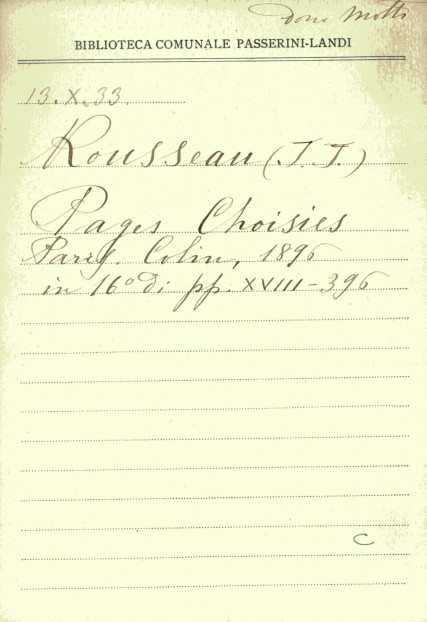 dono Motti
BIBLIOTECA COMUNALE PASSERINI-LANDI
13.X.33.
Rousseau (J. J.)
Pages Choisies
Paris. Colin, 1896
in 16° di pp. XVIII-396
C